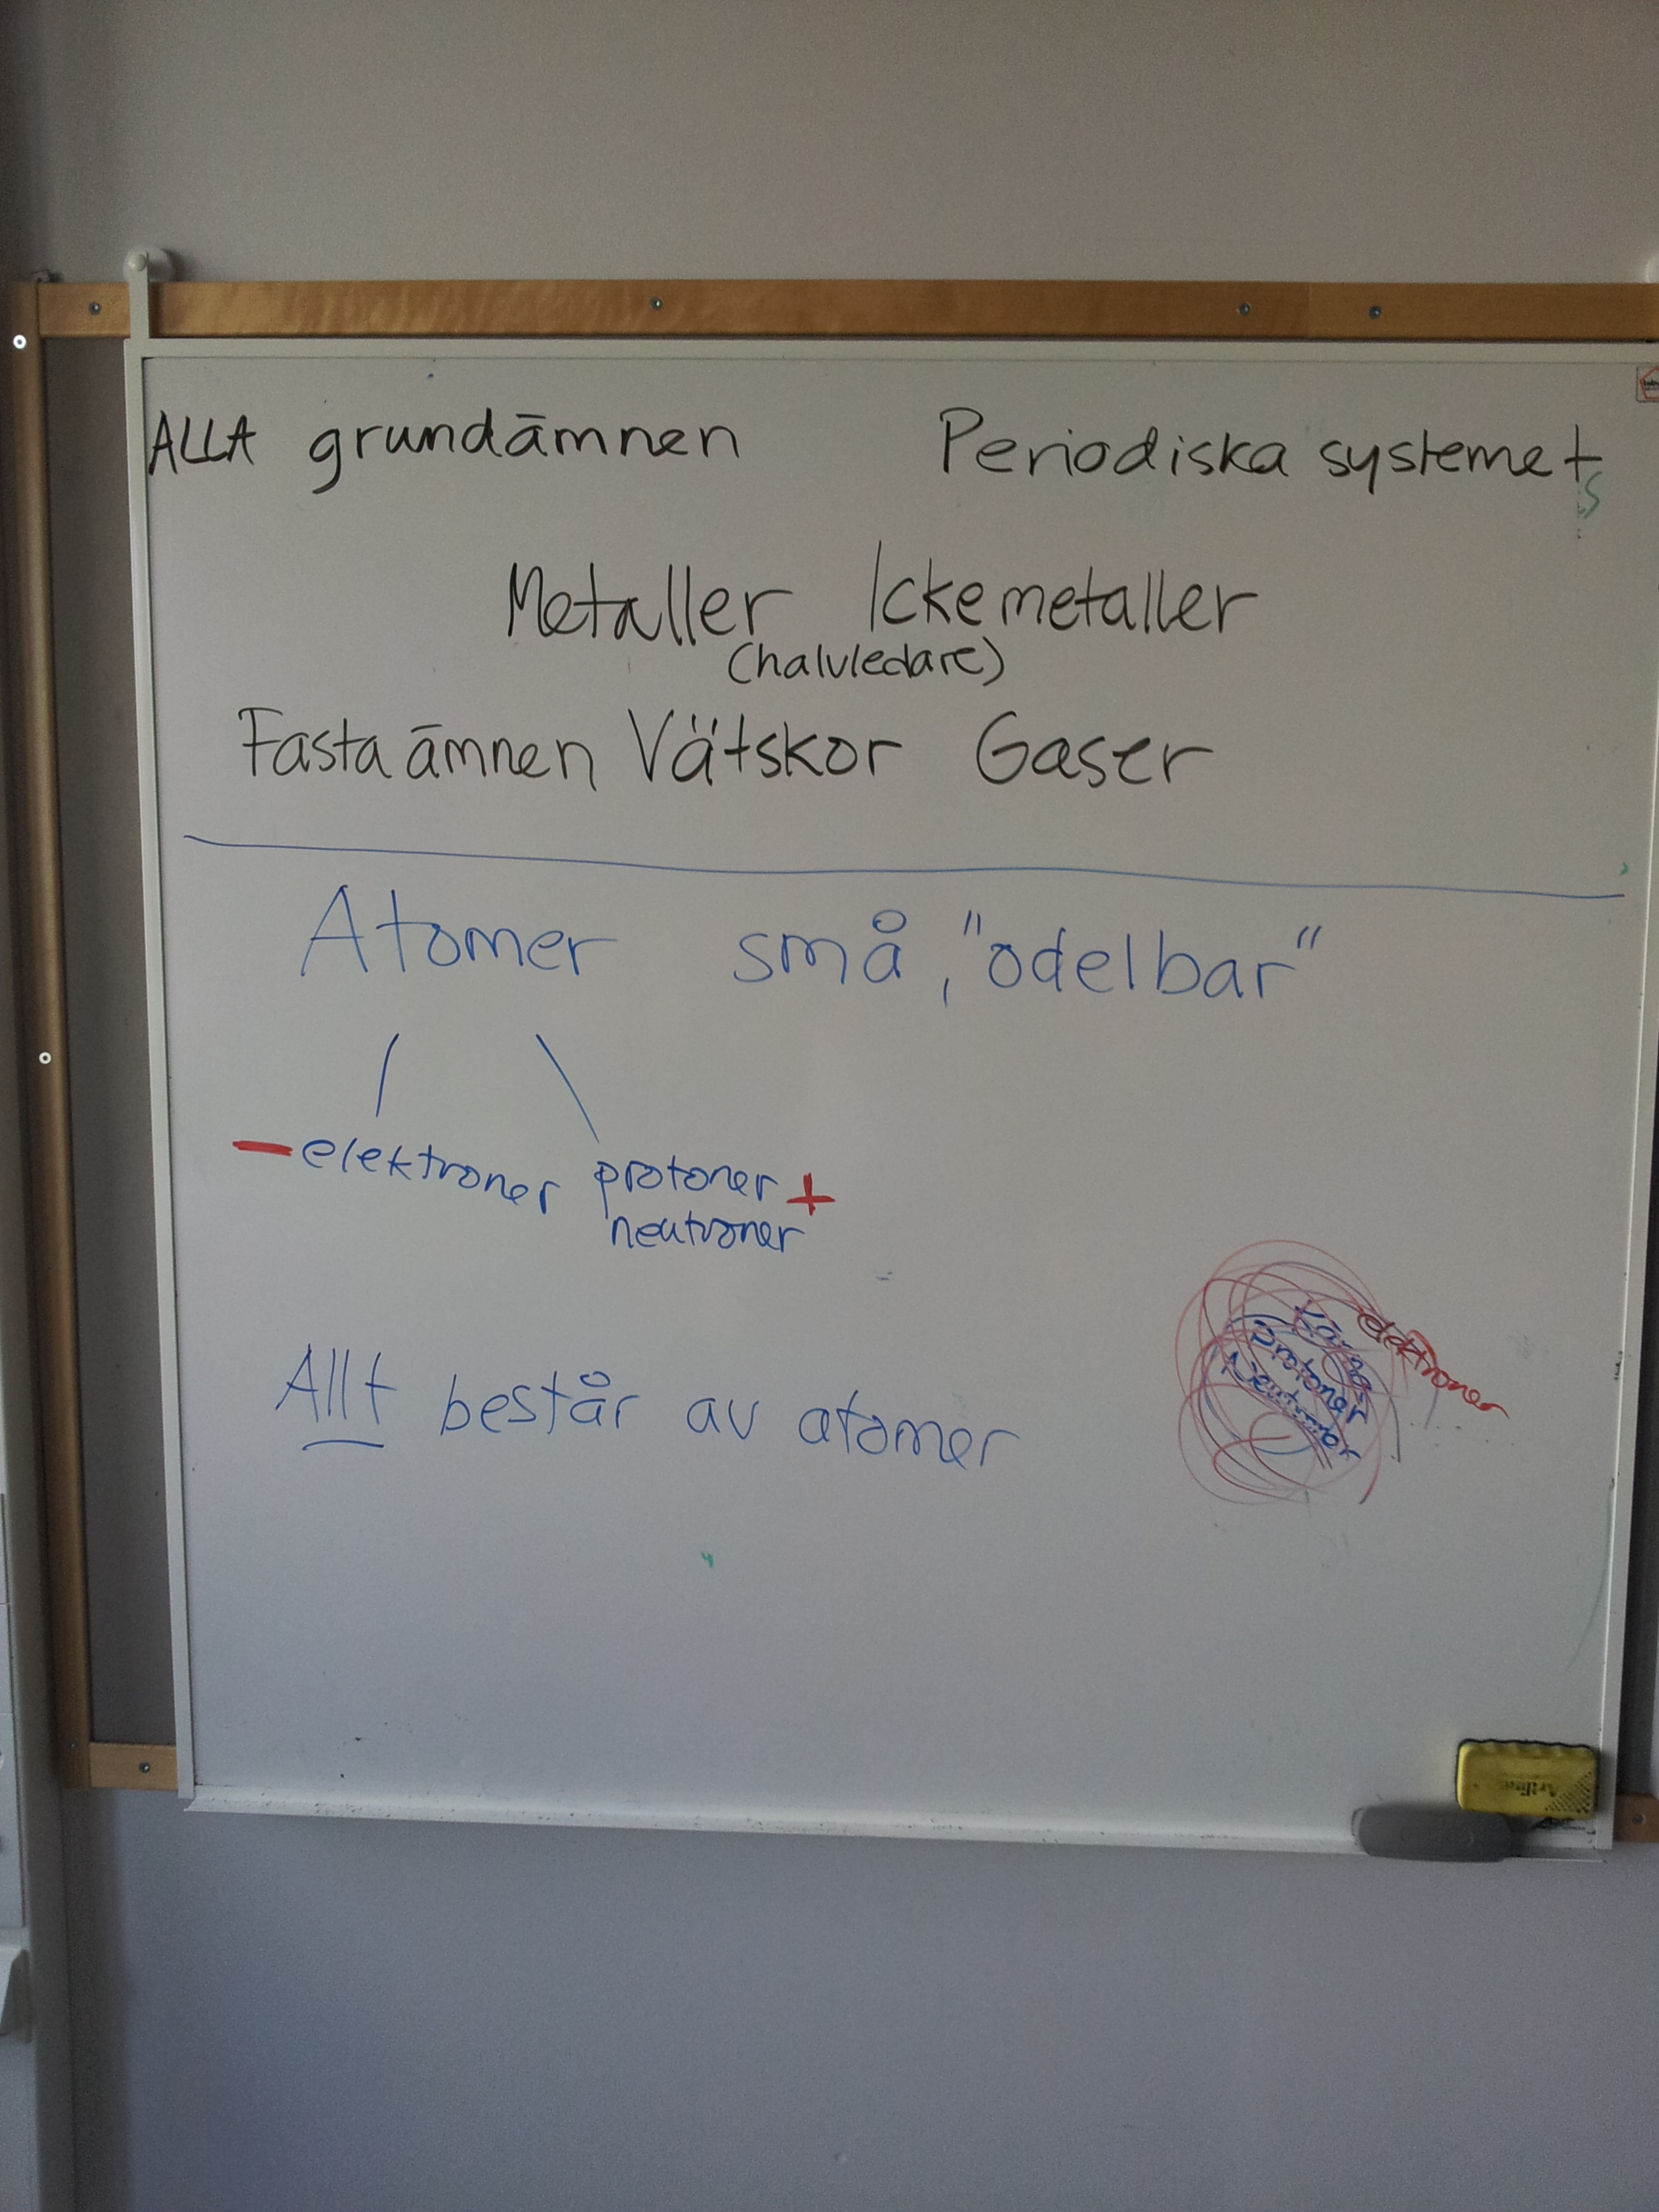 ALLA grundämnen Periodiska systemet
Metaller Ickemetaller
(halvledare)
Fasta ämnen Vätskor Gaser
Atomer små, "odelbar"
– elektroner protoner +
neutroner
elektroner
Kärna:
Protoner
Neutroner
Allt består av atomer
Artline